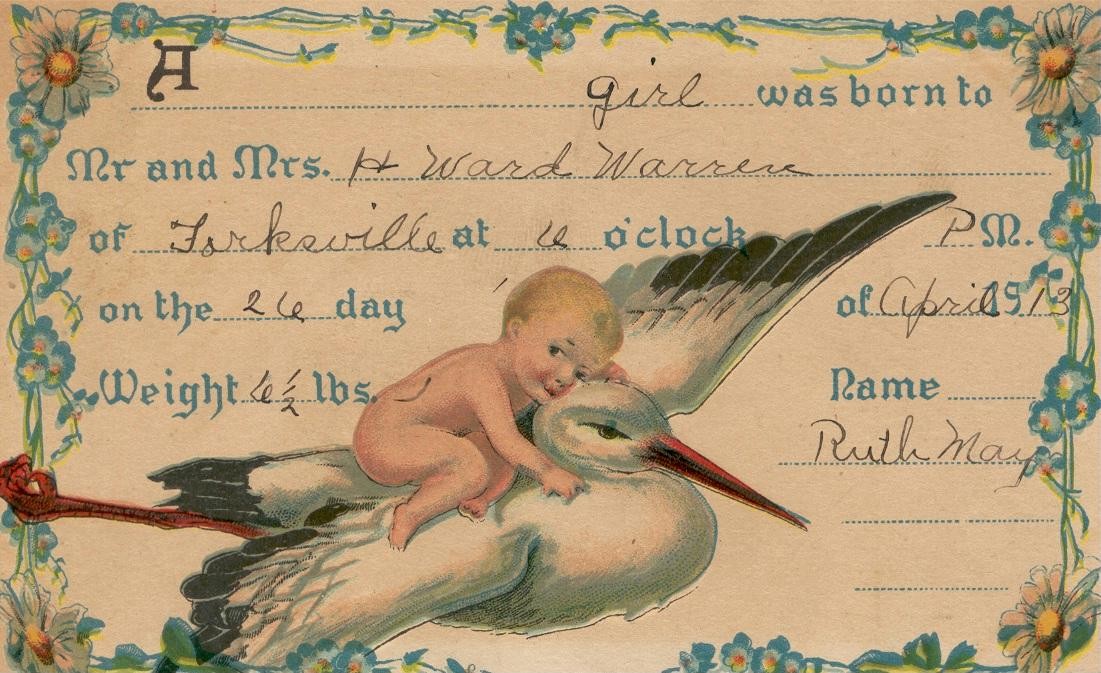 A girl was born to
Mr and Mrs. H Ward Warren
of Forksville at 6 o'clock P M.
on the 26 day of April 1913
Weight 6 1/2 lbs. Name
Ruth May